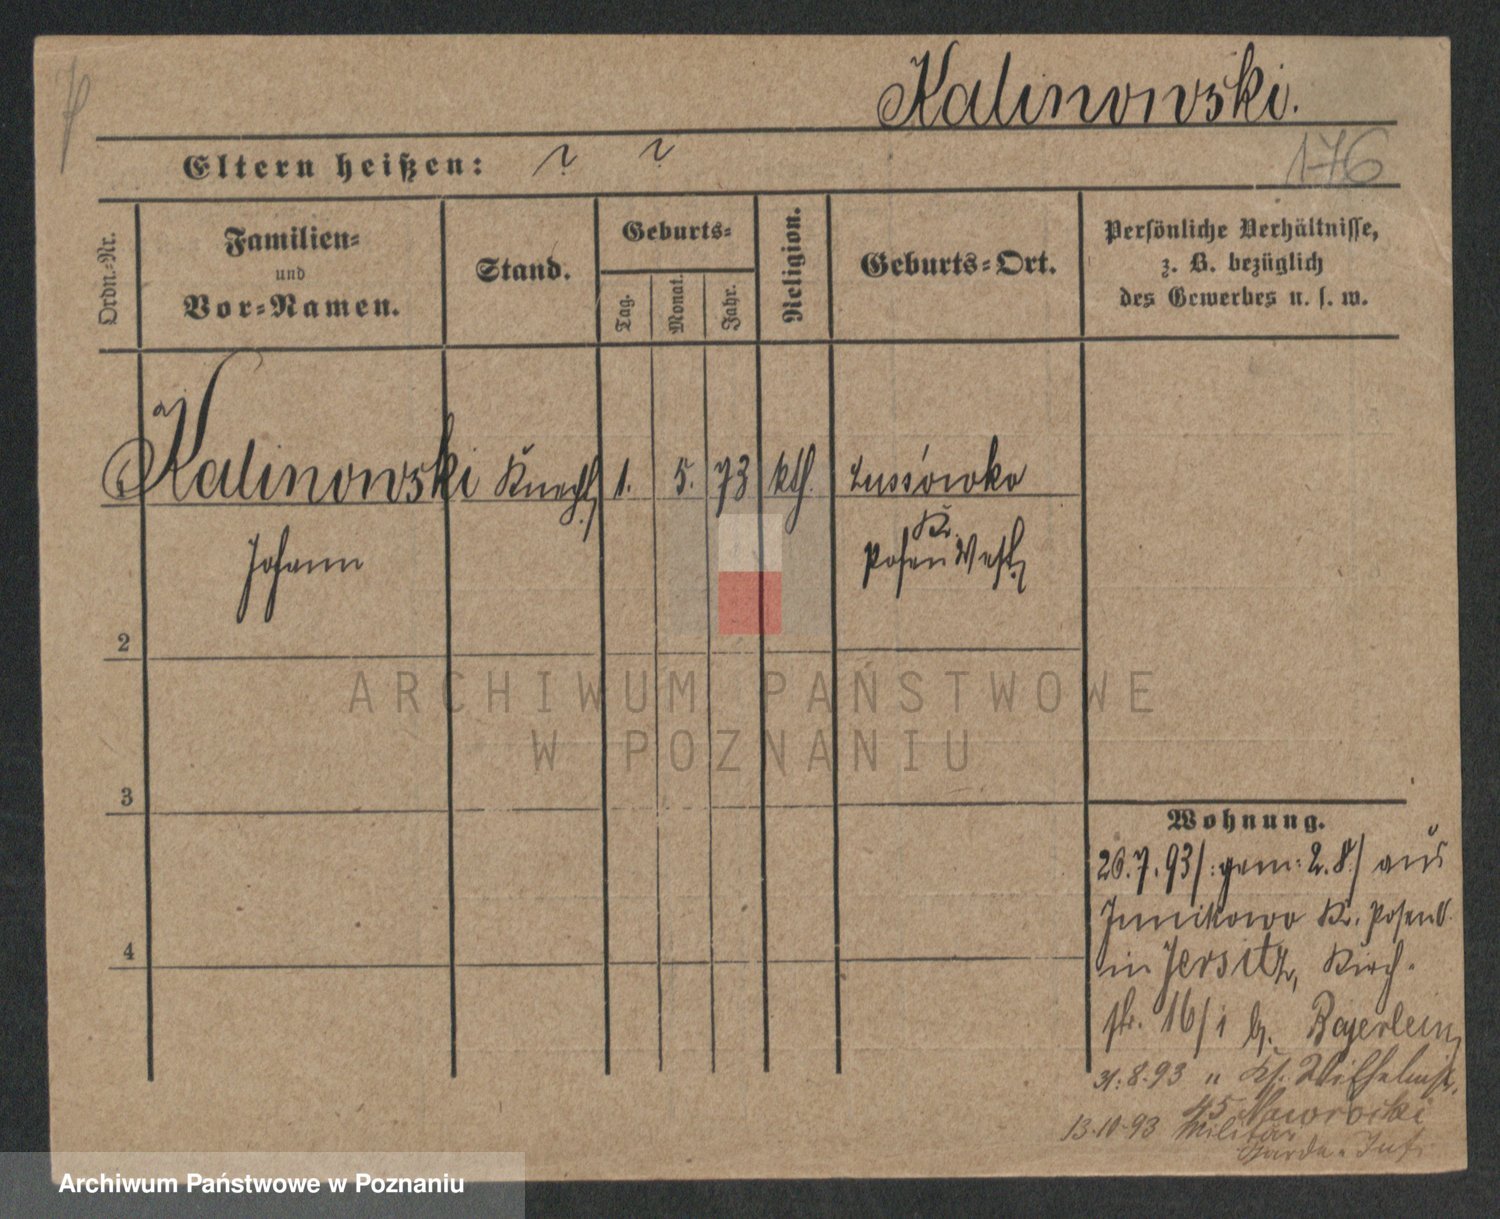 Kalinowski.
176
Eltern heißen: ? ?
Ordn.-Nr.
Familien-
und
Vor-Namen.
Stand.
Geburts-
Tag.
Monat.
Jahr.
Religion.
Geburts-Ort.
Persönliche Verhältnisse,
z. B. bezüglich
des Gewerbes u. s. w.
Kalinowski Knecht 1. 5. 73 kth. Lussówko
Johann
Kr.
Posen West
2
3
4
ARCHIWUM PAŃSTWOWE
W POZNANIU
Wohnung.
26.7.93/: gem: 2.8./ aus
Junikowo Kr. Posen
in Jersitz, Kirch-
str. 16/I b. Bayerlein
31.8.93 " Wilhelmstr.
45 Nawrocki
13.10.93 Militär
Garde. Inf.
Archiwum Państwowe w Poznaniu